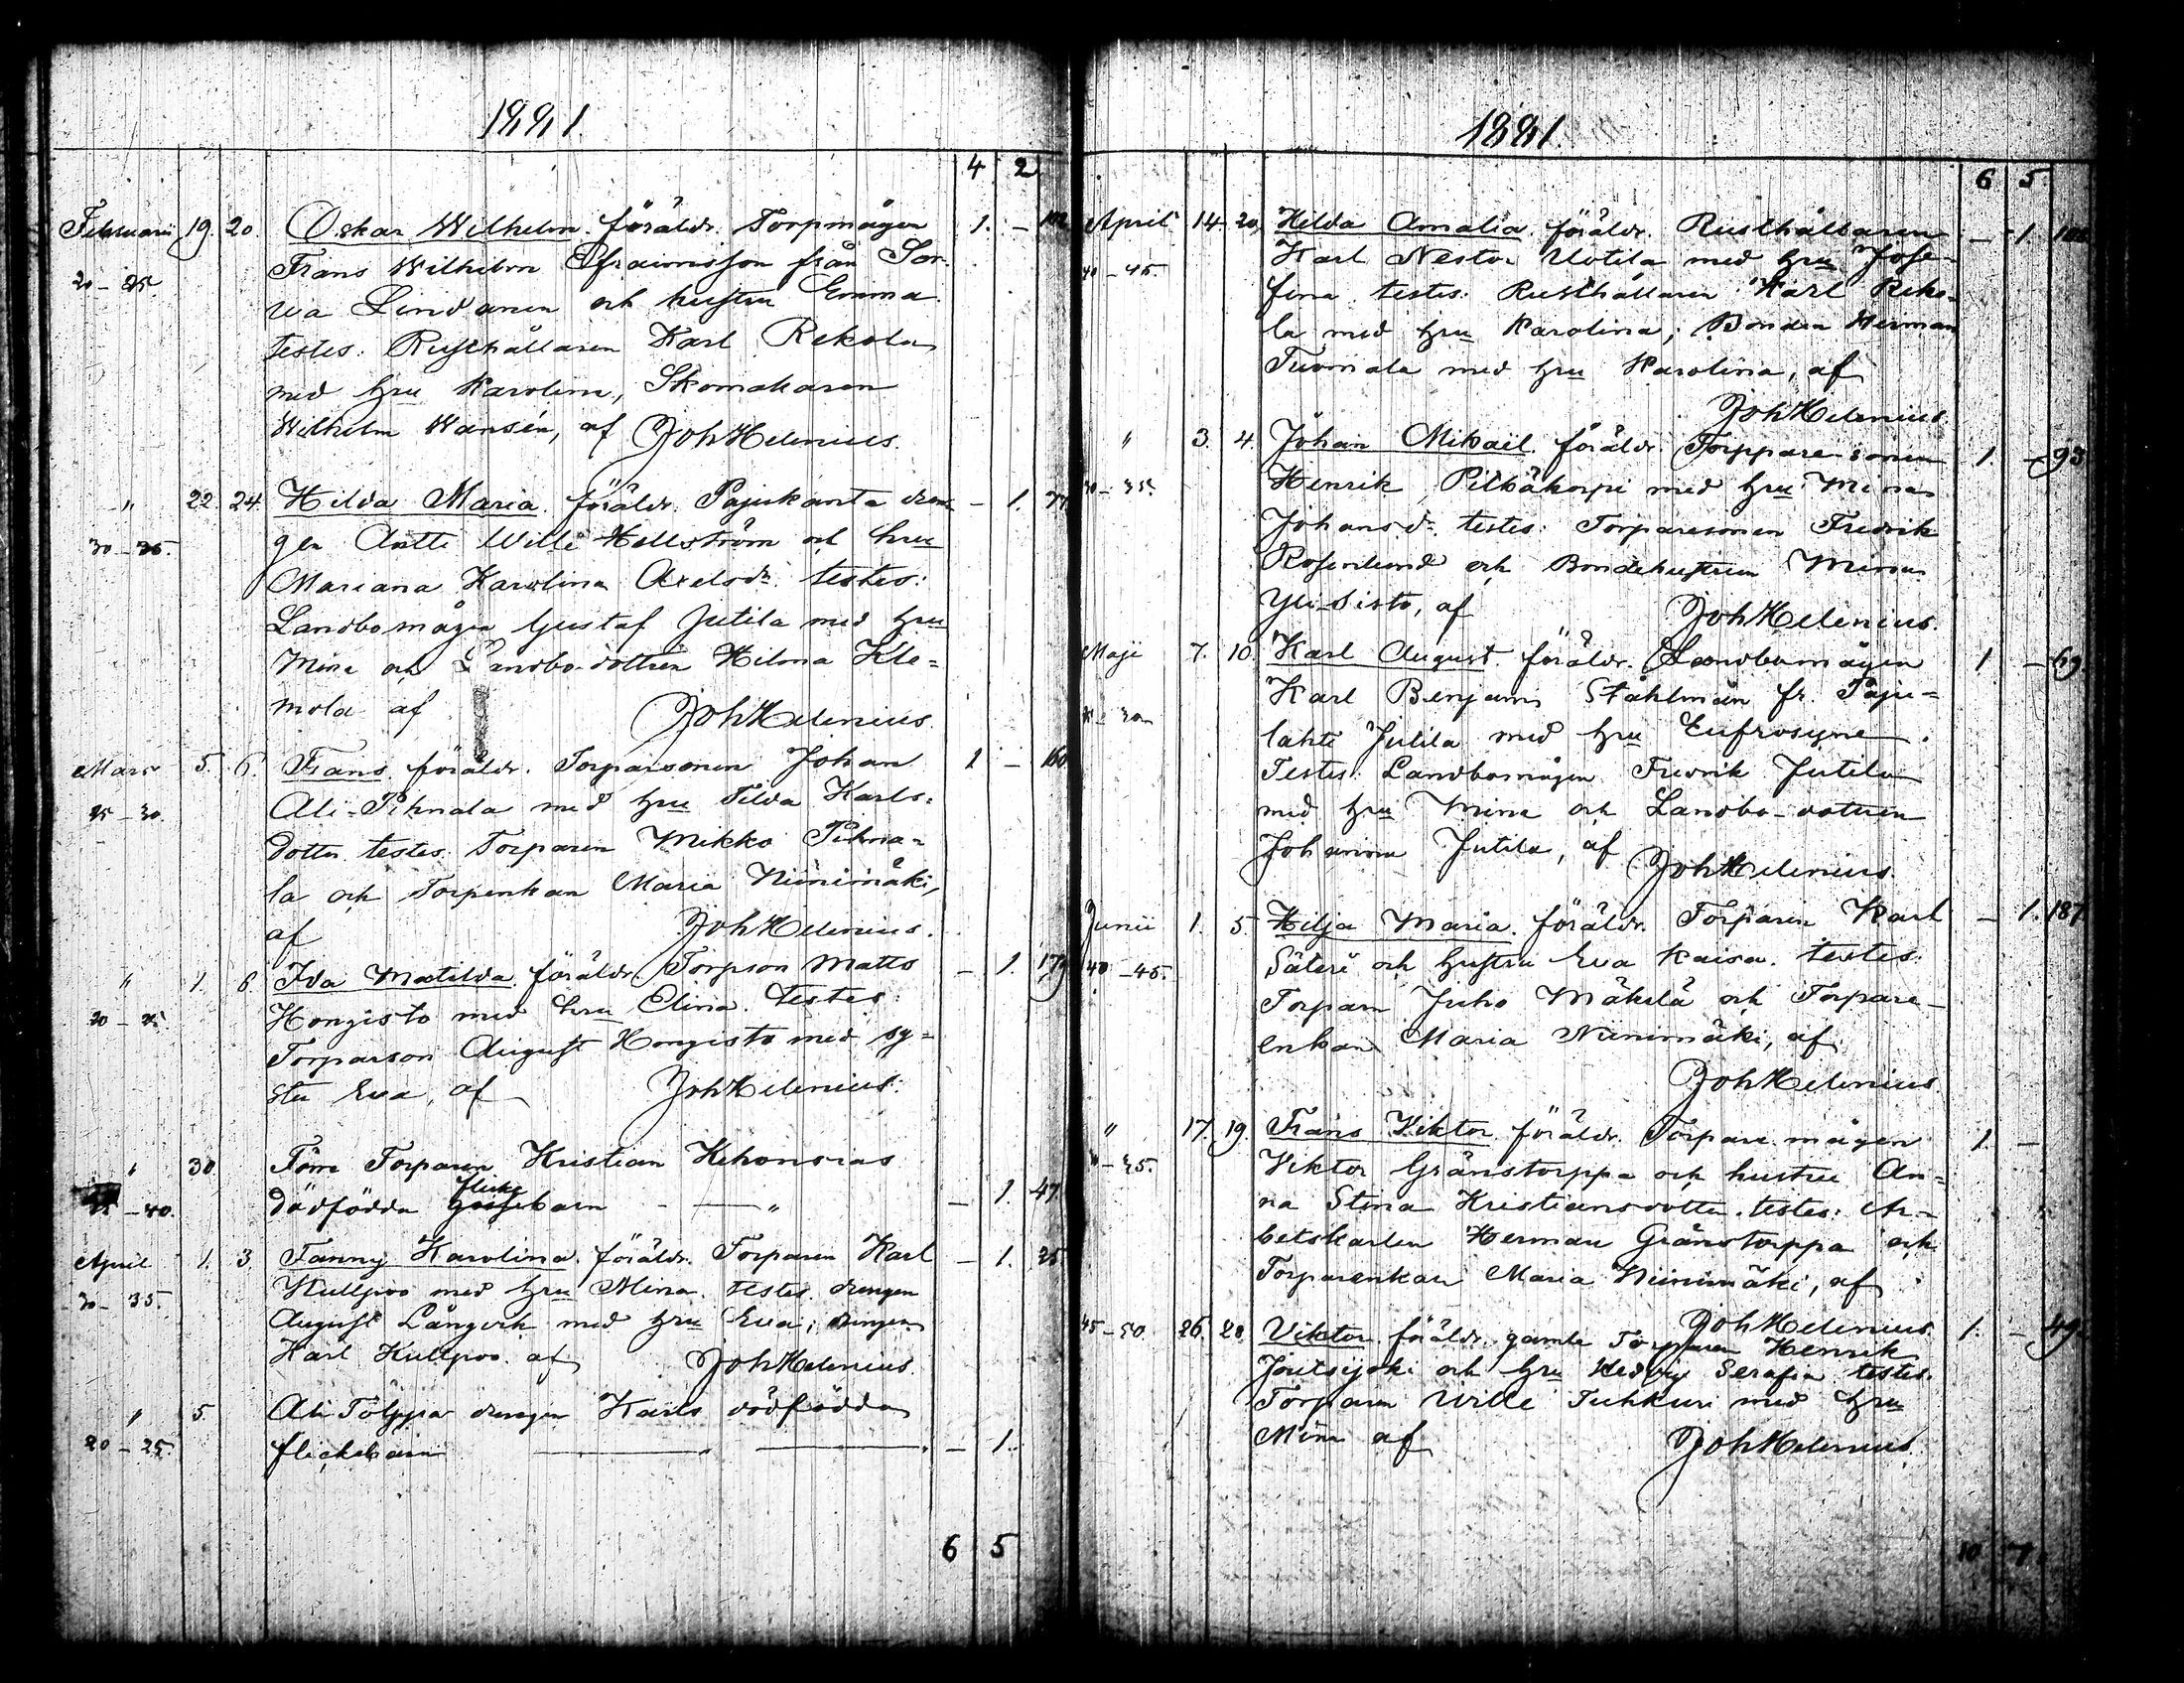 1881.
4 2
Februarii 19. 20. Oskar Wilhelm. föräldr. Torpmågen 1. – 102
20–25. Frans Wilhelm Efraimsson från Sor-
va Lindanen och hustru Emma.
testes: Rusthållaren Karl Rekola
med hru Karolina, Skomakaren
Wilhelm Wansén, af Joh Helenius.
" 22. 24. Hilda Maria. föräldr. Pajukanta dren- – 1. 77
30–35. gen Antti Wille Hellström och hru
Mariana Karolina Axelsdr. testes:
Landbomågen Gustaf Jutila med hru
Mina och Landbo-dottren Hilma Kle=
mola af Joh Helenius.
Mars 5. 6. Frans. föräldr. Torparsonen Johan 1 – 160
25–30. Ali-Pihnala med hru Tilda Karls=
dotter. testes: Torparen Mikko Pihna=
la och Torpenkan Maria Niinimäki,
af Joh Helenius.
" 1. 6. Ida Matilda. föräldr. Torpson Matts – 1. 179
20–25 Hongisto med hru Elina. Testes:
Torparson August Hongisto med sy=
ster Eva, af Joh Helenius.
" 30 Förre Torparen Kristian Kehonojas
–40. dödfödda flicke gossebarn – " – 1. 47.
April 1. 3. Fanny Karolina. föräldr. Torparen Karl – 1. 25
30–35. Kullpoo med hru Mina. testes. drengen
August Långvik med hru Eva; drengen
Karl Kullpoo. af Joh Helenius.
" 5. Ali Tölppä drengen Karls dödfödda
20–25. flickebarn " – 1.
6 5
1881.
6 5.
April 14. 20. Hilda Amalia. föräldr. Rusthållaren – 1.
40–45. Karl Nestor Uotila med hru Jose-
fina. testes: Rusthållaren Karl Reko-
la med hru Karolina; Bonden Herman
Tuomala med hru Karolina, af
Joh Helenius.
" 3. 4. Johan Mikael. föräldr. Torppare sonen 1. – 93
30–35. Henrik Pitkäkorpi med hru Mina
Johansdr. testes: Torparesonen Fredrik
Rosenlund och Bondehustrun Mina
Yli-Sisto, af Joh Helenius.
Maji 7. 10. Karl August. föräldr. Landbomågen 1 – 69.
25–30 Karl Benjam Ståhlman fr. Paju=
lahti Jutila med hru Eufrosyne.
Testes: Landbomågen Fredrik Jutila
med hru Mina och Landbo-dottren
Johanna Jutila, af Joh Helenius.
Junii 1. 5. Hilja Maria. föräldr. Torparen Karl – 1. 187
40–45. Säteri och hustru Eva Kaisa. testes:
Torparn Juho Mäkelä och Torpare-
enkan Maria Niinimäki, af
Joh Helenius.
" 17. 19. Frans Viktor. föräldr. Torpare mågen 1. –
–35. Viktor Gränstorppa och hustru An=
na Stina Kristiansdotter. testes: Ar-
betskarlen Herman Gränstorppa och
Torparenkan Maria Niinimäki, af
Joh Helenius.
45–50. 26. 28. Viktor. föräldr. gamle Torparen Henrik 1. – 49.
Joutsijoki och hru Hedvig Serafia testes.
Torparen Wille Tuhkuri med hru
Mina af Joh Helenius.
10 7.